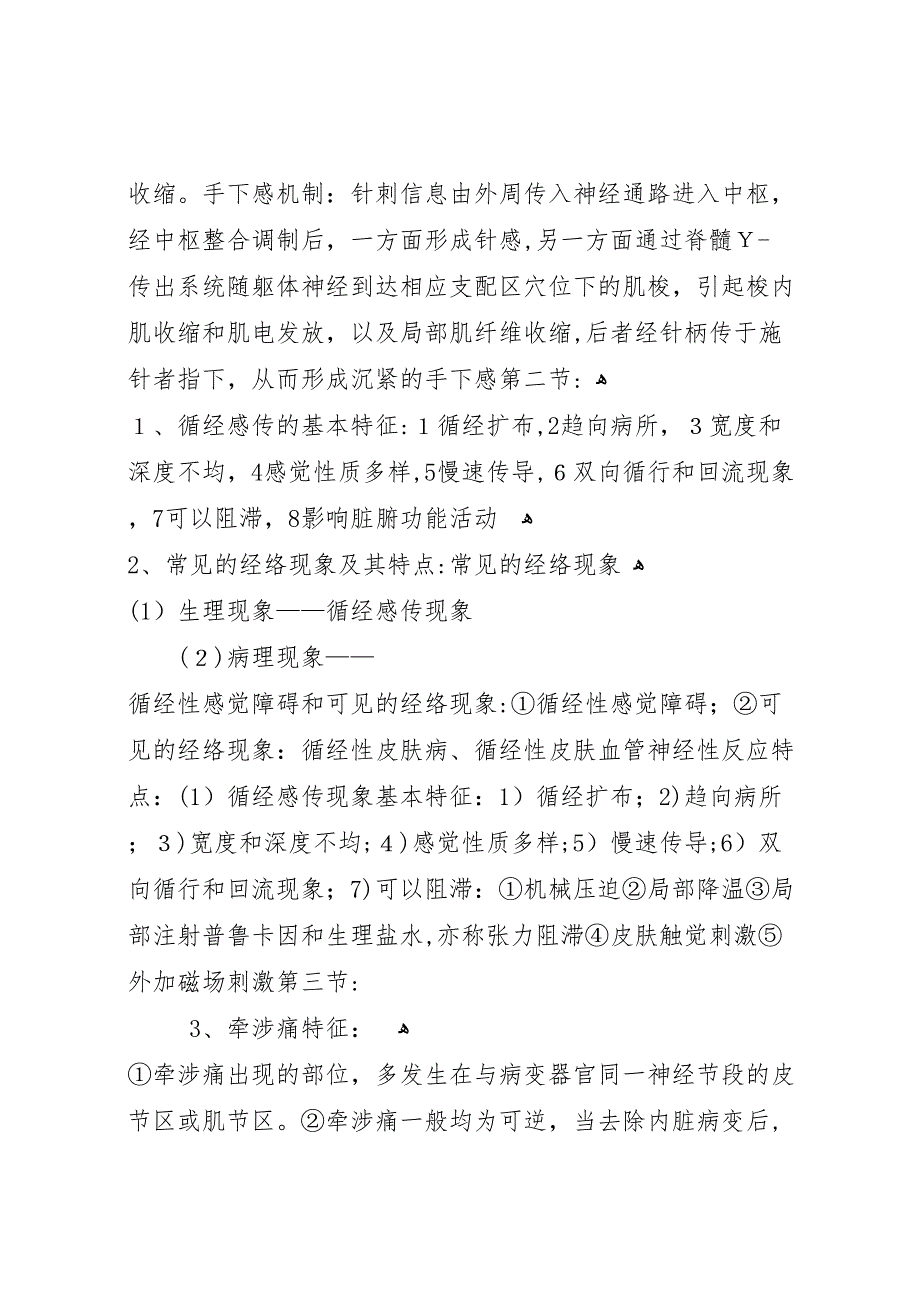 收缩。手下感机制：针刺信息由外周传入神经通路进入中枢，
经中枢整合调制后，一方面形成针感,另一方面通过脊髓Ｙ-
传出系统随躯体神经到达相应支配区穴位下的肌梭，引起梭内
肌收缩和肌电发放，以及局部肌纤维收缩,后者经针柄传于施
针者指下，从而形成沉紧的手下感第二节: ﻫ
１、循经感传的基本特征:１循经扩布,2趋向病所，３宽度和
深度不均，4感觉性质多样,5慢速传导,６双向循行和回流现象
，7可以阻滞，8影响脏腑功能活动 ﻫ
2、常见的经络现象及其特点:常见的经络现象 ﻫ
(1）生理现象——循经感传现象
(２)病理现象——
循经性感觉障碍和可见的经络现象:①循经性感觉障碍；②可
见的经络现象：循经性皮肤病、循经性皮肤血管神经性反应特
点：(1）循经感传现象基本特征：1）循经扩布；2)趋向病所
；３)宽度和深度不均;４)感觉性质多样;5）慢速传导;6）双
向循行和回流现象；7)可以阻滞：①机械压迫②局部降温③局
部注射普鲁卡因和生理盐水,亦称张力阻滞④皮肤触觉刺激⑤
外加磁场刺激第三节:
3、牵涉痛特征： ﻫ
①牵涉痛出现的部位，多发生在与病变器官同一神经节段的皮
节区或肌节区。②牵涉痛一般均为可逆，当去除内脏病变后,